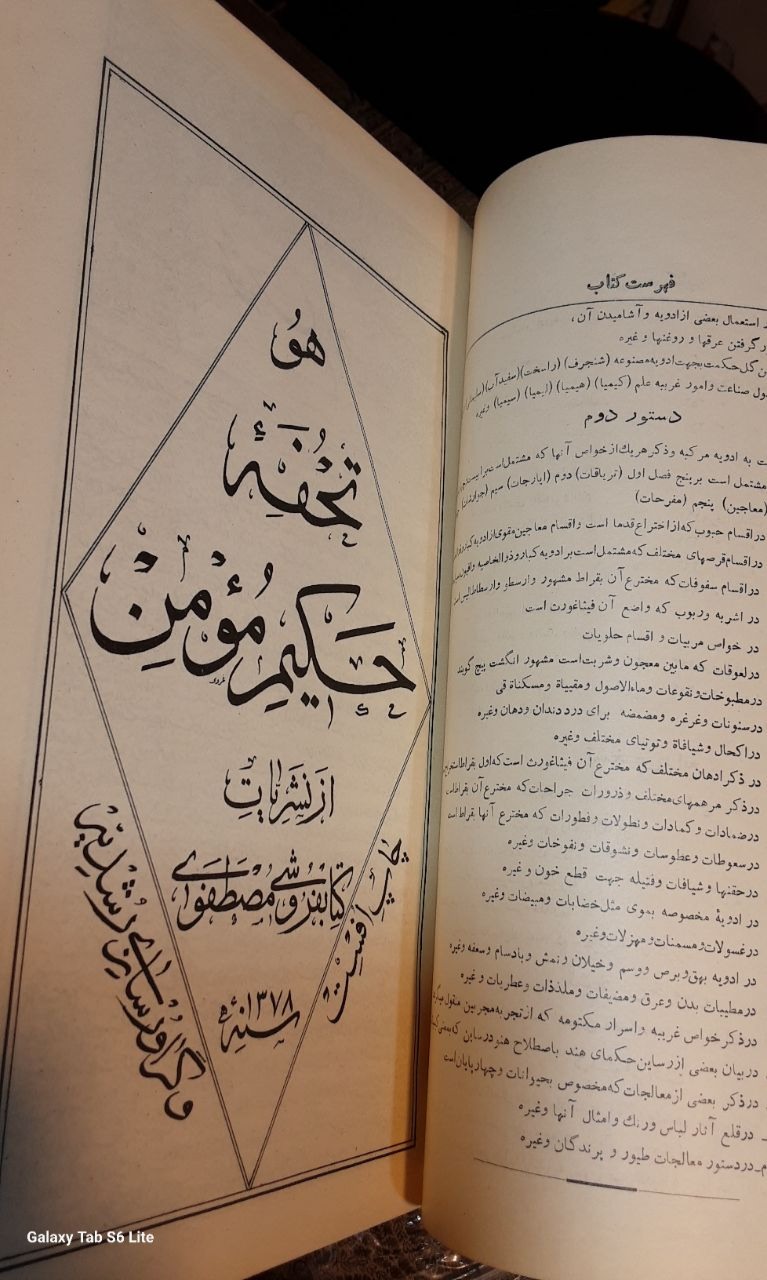 هو
تحفهٔ
حکیم مؤمن
از نشریات
کتابفروشی مصطفوی
چاپ افست
وگراورسازی رشدیه
سنه ۱۳۷۸
فهرست کتاب
استعمال بعضی از ادویه و آشامیدن آن ،
گرفتن عرقها و روغنها و غیره
گل حکمت بجهت ادویه مصنوعه (شنجرف) (راسخت) (سفیدآب)
صناعت و امور غریبه علم (کیمیا) (هیمیا) (لیمیا) (سیمیا) وغیره
دستور دوم
به ادویه مرکبه وذکر هریك از خواص آنها که مشتمل است
مشتمل است بر پنج فصل اول (تریاقات) دوم (ایارجات) سیم
(معاجین) پنجم (مفرحات)
در اقسام حبوب که از اختراع قدما است واقسام معاجین مقوی از ادویه
در اقسام قرصهای مختلف که مشتمل است بر ادویه کبار و ذوالخاصیه
در اقسام سفوفات که مخترع آن بقراط مشهور وارسطو وارسطاطالیس است
در اشربه وربوب که واضع آن فیثاغورث است
در خواص مربیات و اقسام حلویات
درلعوقات که مابین معجون وشربت است مشهور انگشت پیچ گویند
درمطبوخات ونقوعات وماءالاصول ومقییاة ومسکناة قی
درسنونات وغرغره ومضمضه برای درد دندان ودهان وغیره
دراکحال وشیافاة وتوتیای مختلف وغیره
در ذکر ادهان مختلف که مخترع آن فیثاغورث است که اول بقراط
درذکر مرهمهای مختلف وذرورات جراحات که مخترع آن بقراط
درضمادات وکمادات ونطولات وفطورات که مخترع آنها بقراط است
درسعوطات وعطوسات ونشوقات ونفوخات وغیره
درحقنها وشیافات وفتیله جهت قطع خون و غیره
در ادویهٔ مخصوصه بموی مثل خضابات ومبیضات وغیره
درغسولات ومسمنات ومهزلات وغیره
در ادویه بهق وبرص و وسم وخیلان ونمش وبادسام وسعفه وغیره
درمطیبات بدن وعرق ومضیقات وملذذات وعطریات و غیره
درذکر خواص غریبه واسرار مکتومه که از تجربه مجربین منقول
دربیان بعضی از رساین حکمای هند باصطلاح هنود رساین که
درذکر بعضی از معالجات که مخصوص بحیوانات وچهارپایان است
درقلع آثار لباس ورنك وامثال آنها وغیره
دردستور معالجات طیور و پرندگان وغیره
Galaxy Tab S6 Lite